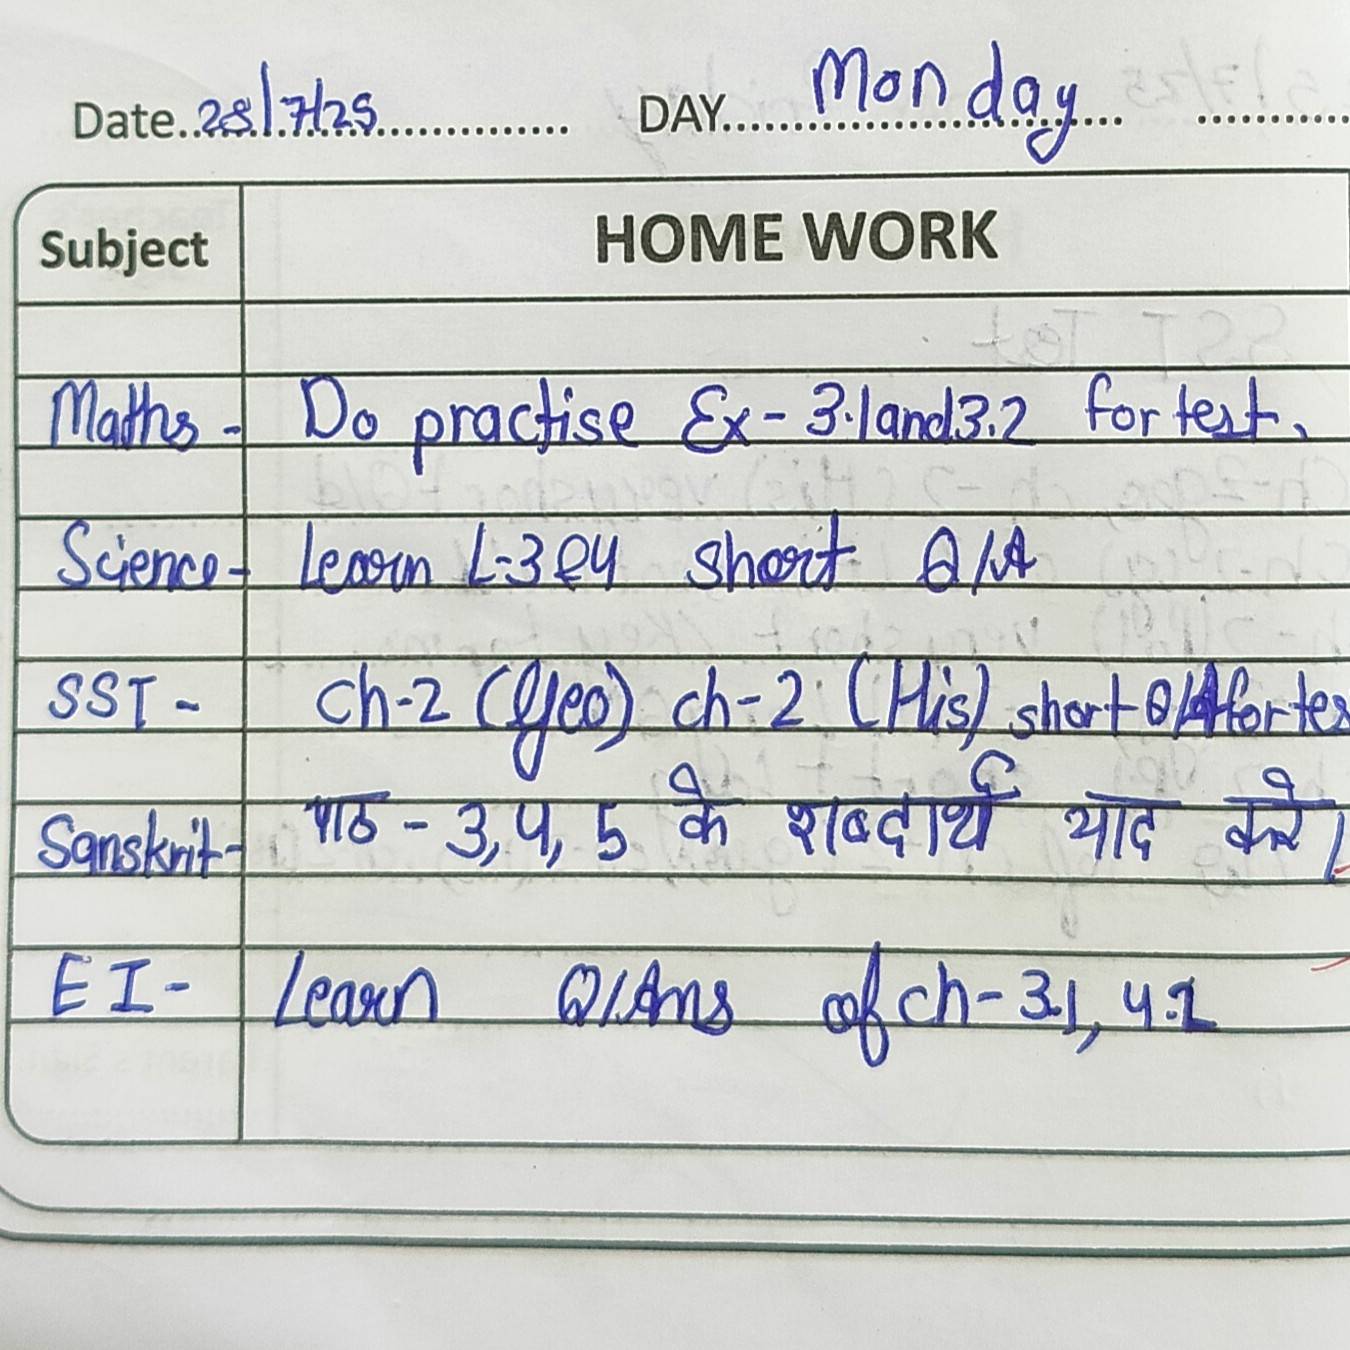 Date..28/7/25 DAY Monday
Subject HOME WORK
Maths - Do practise Ex - 3.1 and 3.2 for test.
Science - Learn L-3 & 4 short Q/A
SST - Ch-2 (Geo) ch-2 (His) short Q/A for tes
Sanskrit - पाठ - 3, 4, 5 के शब्दार्थ याद करे।
E I - Learn Q/Ans of ch - 3.1, 4.1